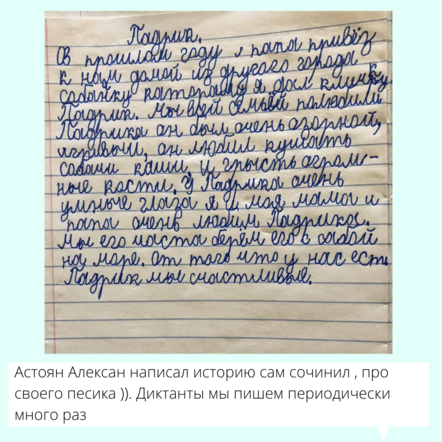 Падрик.
В прошлом году я папа привёз
к нам домой из другого города
собачку которому я дал кличку
Падрик. Мы всей семьёй полюбили
Падрика он был очень озорной,
игривый, он любил кушать
собачи каши, и грысть огром-
ные кости. У Падрика очень
умные глаза я и моя мама и
папа очень любим Падрика.
Мы его часта берём его с сабой
на море. От того что у нас есть
Падрик мы счастливые.
Астоян Алексан написал историю сам сочинил , про
своего песика )). Диктанты мы пишем периодически
много раз